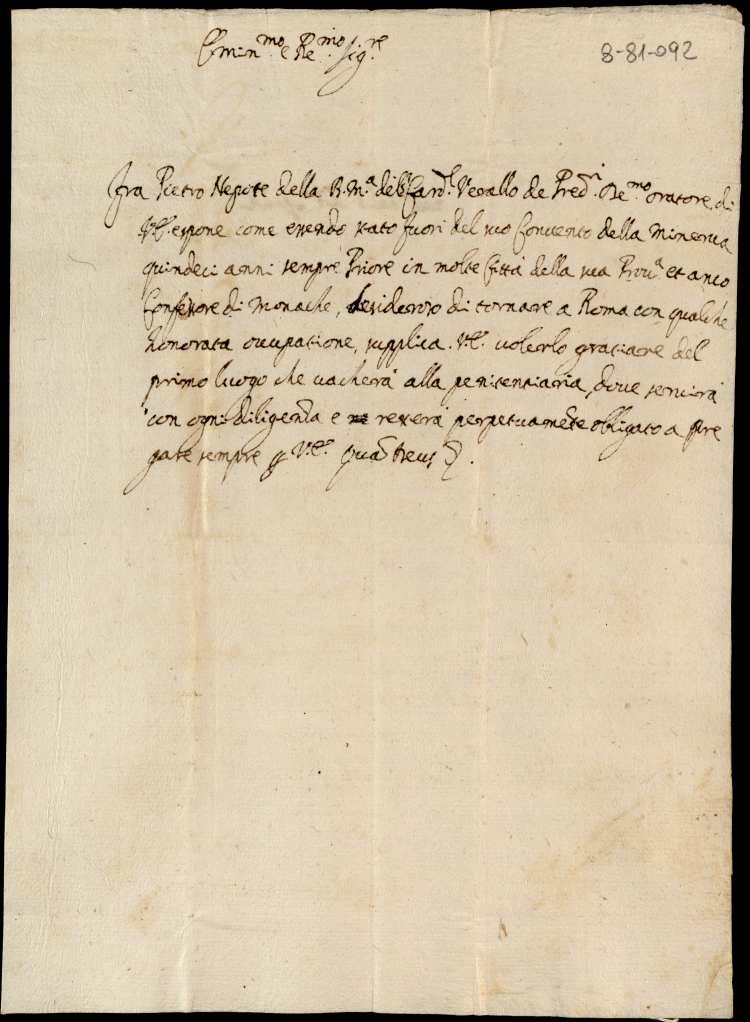 Emin.mo e Re.mo sig.re
8-81-092
Fra Pietro Nepote della B. M.a del Card.l Verallo de Pred.ri De.mo oratore di
V.E. espone come essendo stato fuori del suo Convento della Minerva
quindeci anni sempre Priore in molte Città della sua Prov.a et anco
Confessore di Monache, desideroso di tornare a Roma con qualche
honorata occupatione, supplica V.E. volerlo gratiare del
primo luogo che vacherà alla penitentiaria, dove servirà
con ogni diligenza e resterà perpetuamete obligato a pre
gare sempre V.E. Qua Deus